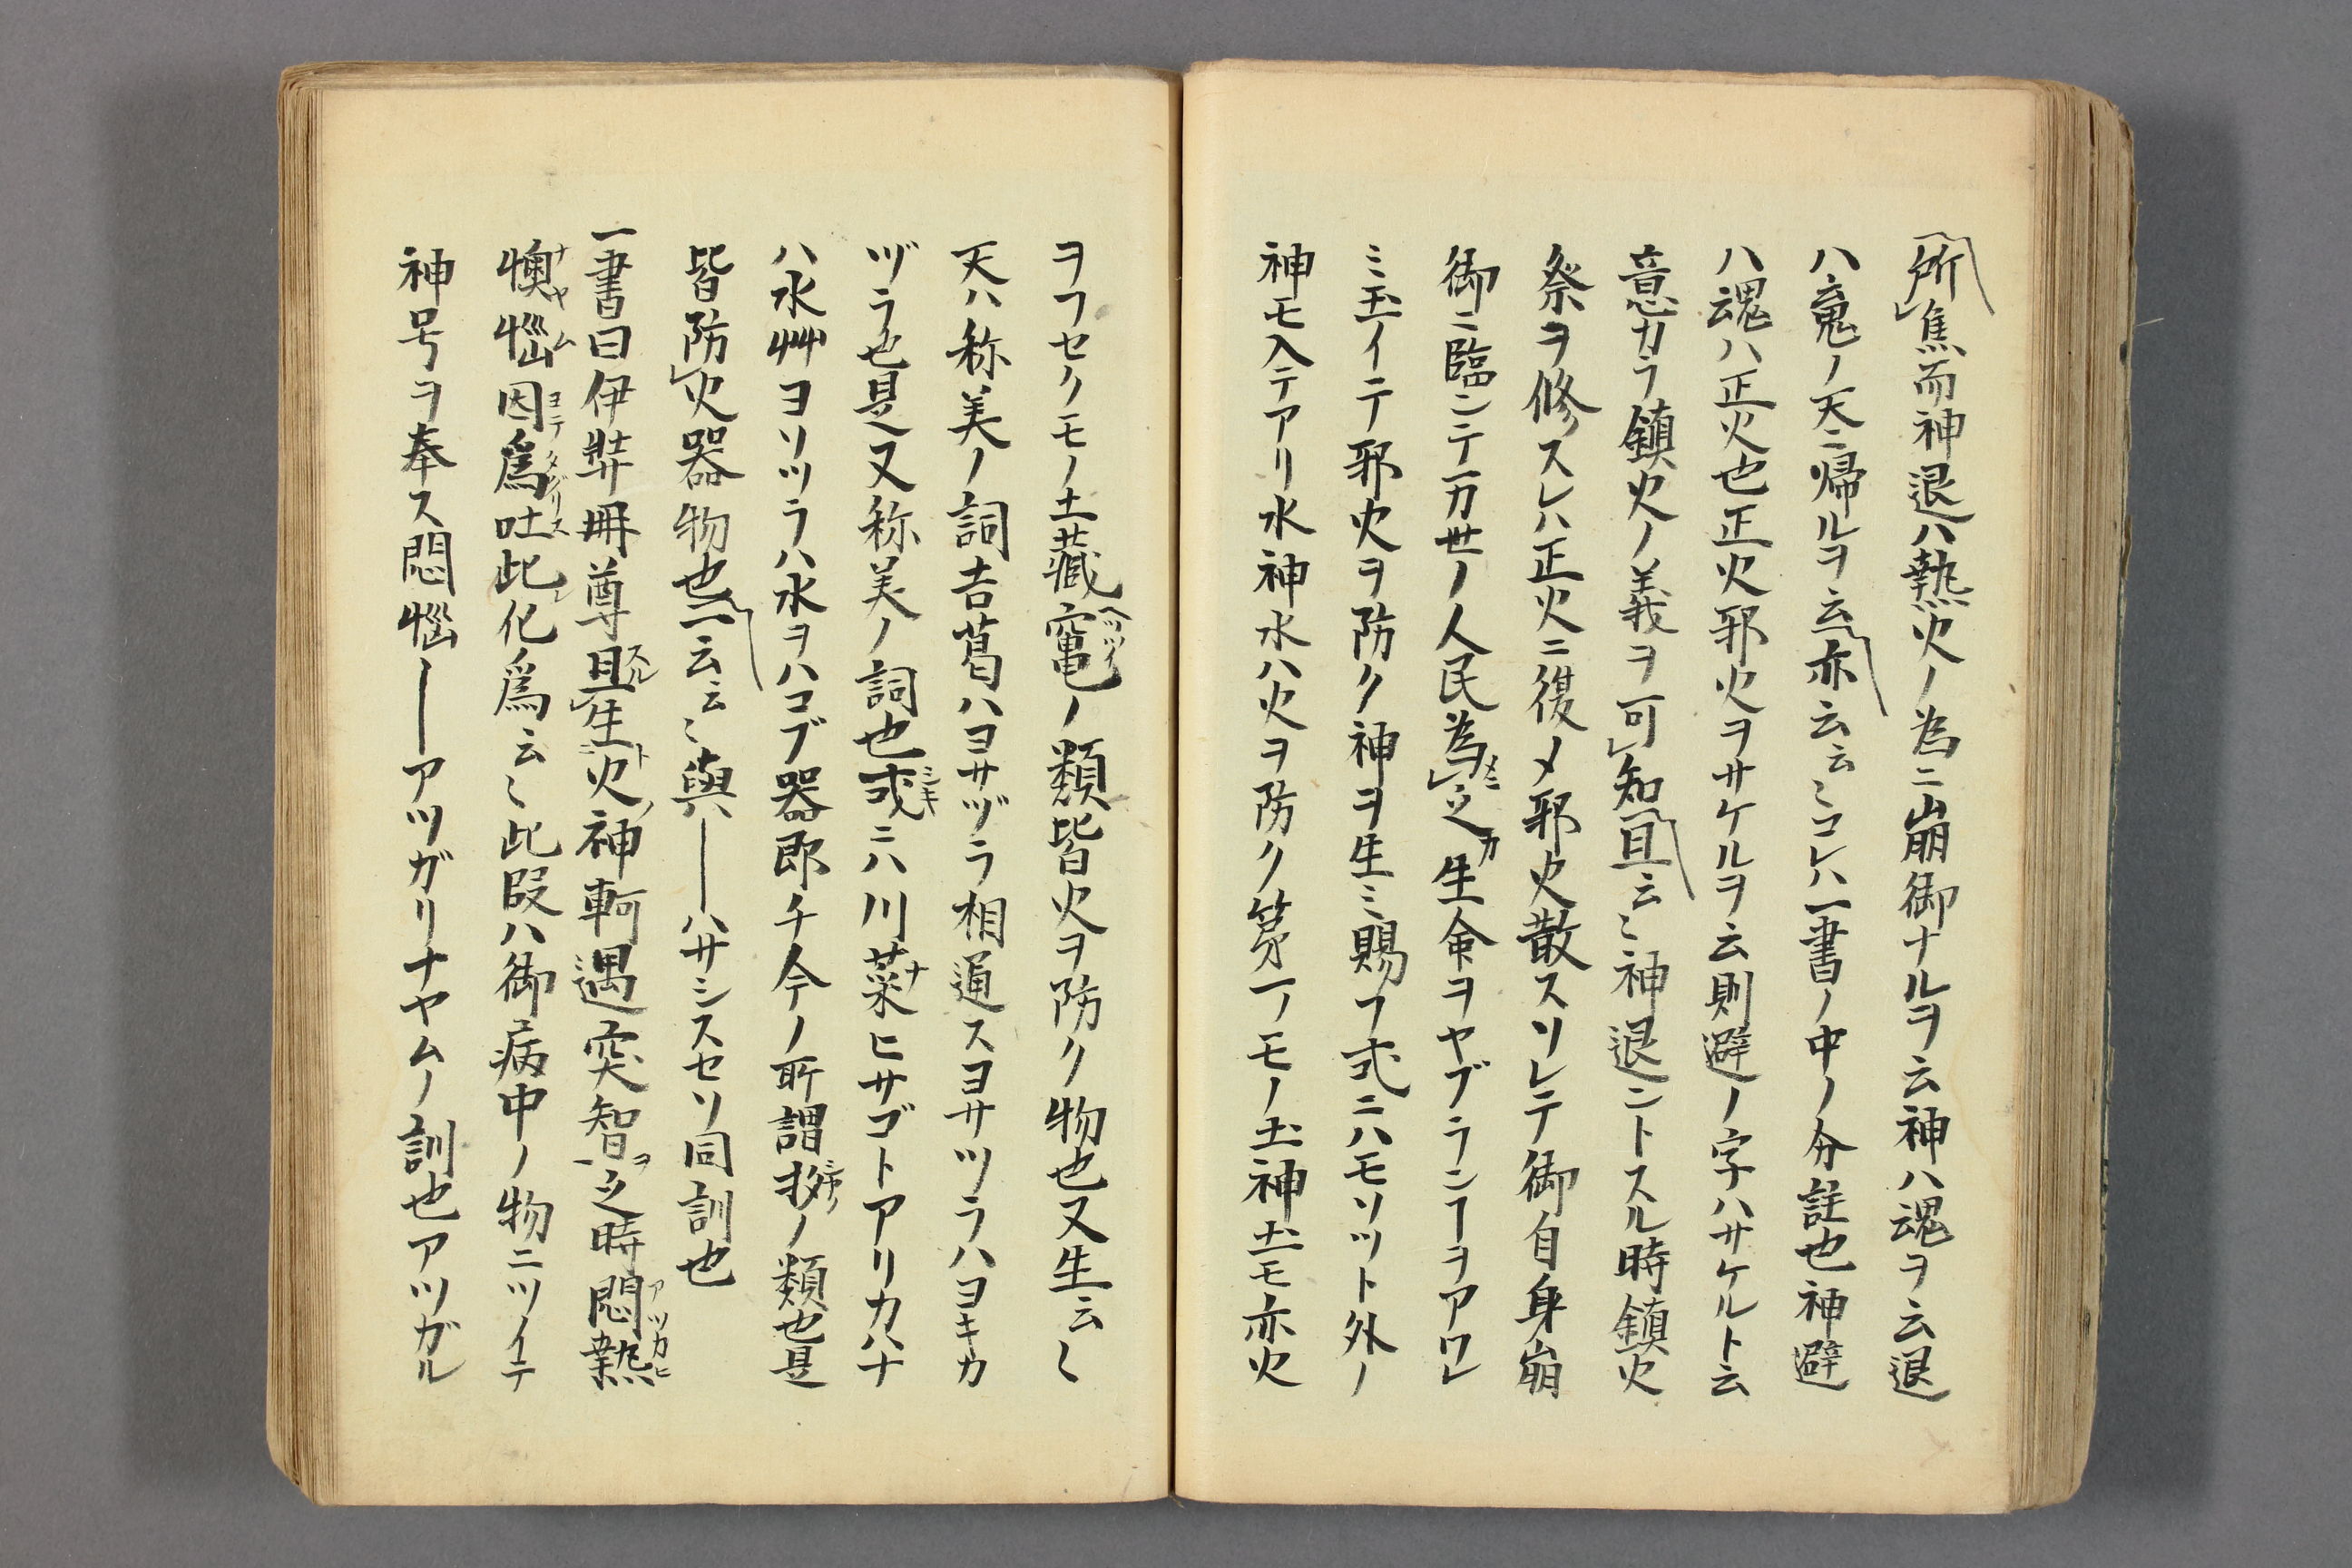 所焦而神退ハ熱火ノ為ニ崩御ナルヲ云神ハ魂ヲ云退
ハ鬼ノ天ニ帰ルヲ云亦云云ミコレハ一書ノ中ノ分註也神避
ハ魂ハ正火也正火邪火ヲサケルヲ云則避ノ字ハサケルト云
意カラ鎮火ノ義ヲ可知且云ミ神退ントスル時鎮火
祭ヲ修スレハ正火ニ復メ邪火散スソレテ御自身崩
御ニ臨ンテ万世ノ人民為之生命ヲヤブランヿヲアワレ
ミ玉イテ邪火ヲ防ク神ヲ生ミ賜フ弐ニハモソツト外ノ
神モ入テアリ水神水ハ火ヲ防ク第一ノモノ土神土モ亦火
ヲフセクモノ土藏竈ノ類皆火ヲ防ク物也又生云〻
天ハ称美ノ詞吉葛ハヨサヅラ相通スヨサツラハヨキカ
ヅラ也是又称美ノ詞也式ニハ川菜ヒサゴトアリカハナ
ハ水艸ヨソツラハ水ヲハコブ器即チ今ノ所謂ノ類也是
皆防火器物也一云云ミ與ーハサシスセソ同訓也
一書曰伊弉冊尊且生火神軻遇突智之時悶熱
懊悩因為吐此化為云ミ此段ハ御病中ノ物ニツイテ
神号ヲ奉ス悶悩ーアツガリナヤムノ訓也アツガル